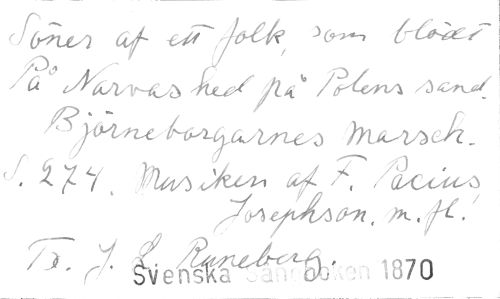 Söner af ett folk, som blödt
På Narvas hed på Polens sand.
Björneborgarnes marsch.
S. 274. Musiken af F. Pacius,
Josephson, m. fl.
Tx. J. L. Runeberg.
Svenska Sångboken 1870